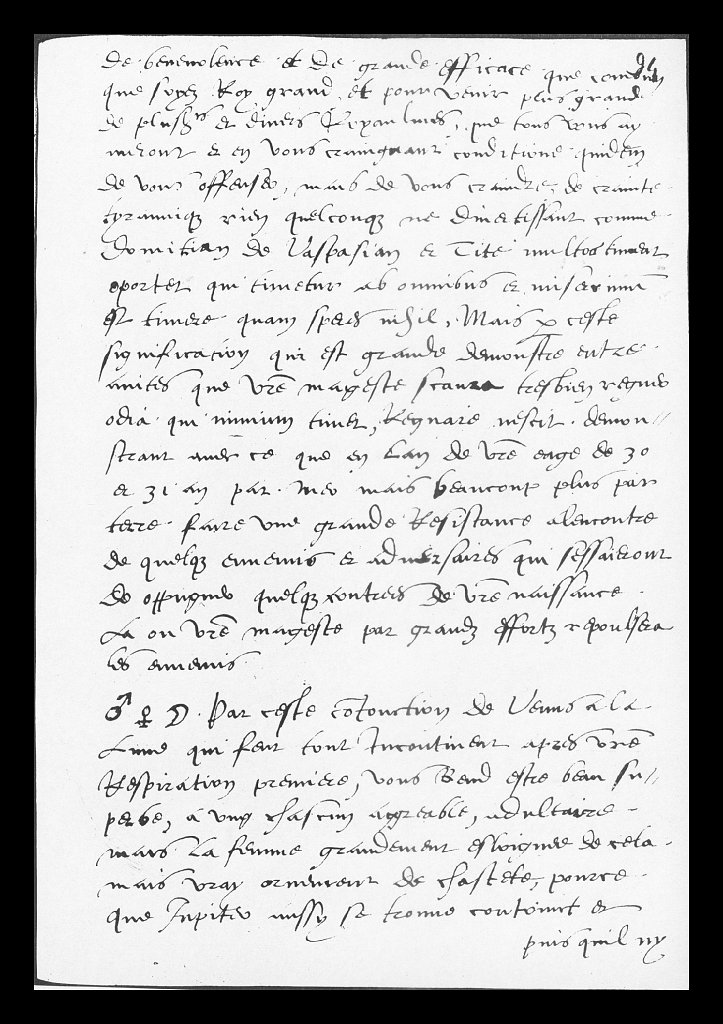 de benevolence et de grande efficace que combien
que soyez Roy grand et pour venir plus grand
de plusrs et divers Royaulmes, que tous vous ay
meront et en vous craignant conditione quidem
de vous offenser, mais de vous craindre, de crainte
tyrannicq rien quelconq ne divertissant comme
Domitian de Vaspasian et Tite multos timeat
oportet qui timetur ab omnibus et miserimum
est timere quam speres nihil, Mais p ceste
signification qui est grande demonstre entre
aultres que vre mageste scaura tresbien regner
odia qui nimium timet, Regnare nescit. demon-
strant avec ce que en Lan de vre eage de 30
et 31 an par mer mais beaucoup plus par
terre faire une grande Resistance alencontre
de quelqz ennemis et adversaires qui sessaieront
de oppugner quelqz contrees de vre naissance.
La ou vre mageste par grandz effortz repoulsera
les ennemis.
♂ ♀ ☽. Par ceste conionction de Venus a la
Lune qui feut tout Incontinent apres vre
Respiration premiere, vous Rend estre beau su-
perbe, a ung chascun aggreable, adultaire
mais La femme grandement esloignee de cela.
mais vray ornement de chastete, pource
que Jupiter aussy se trouve conioinct et
puis quil ny